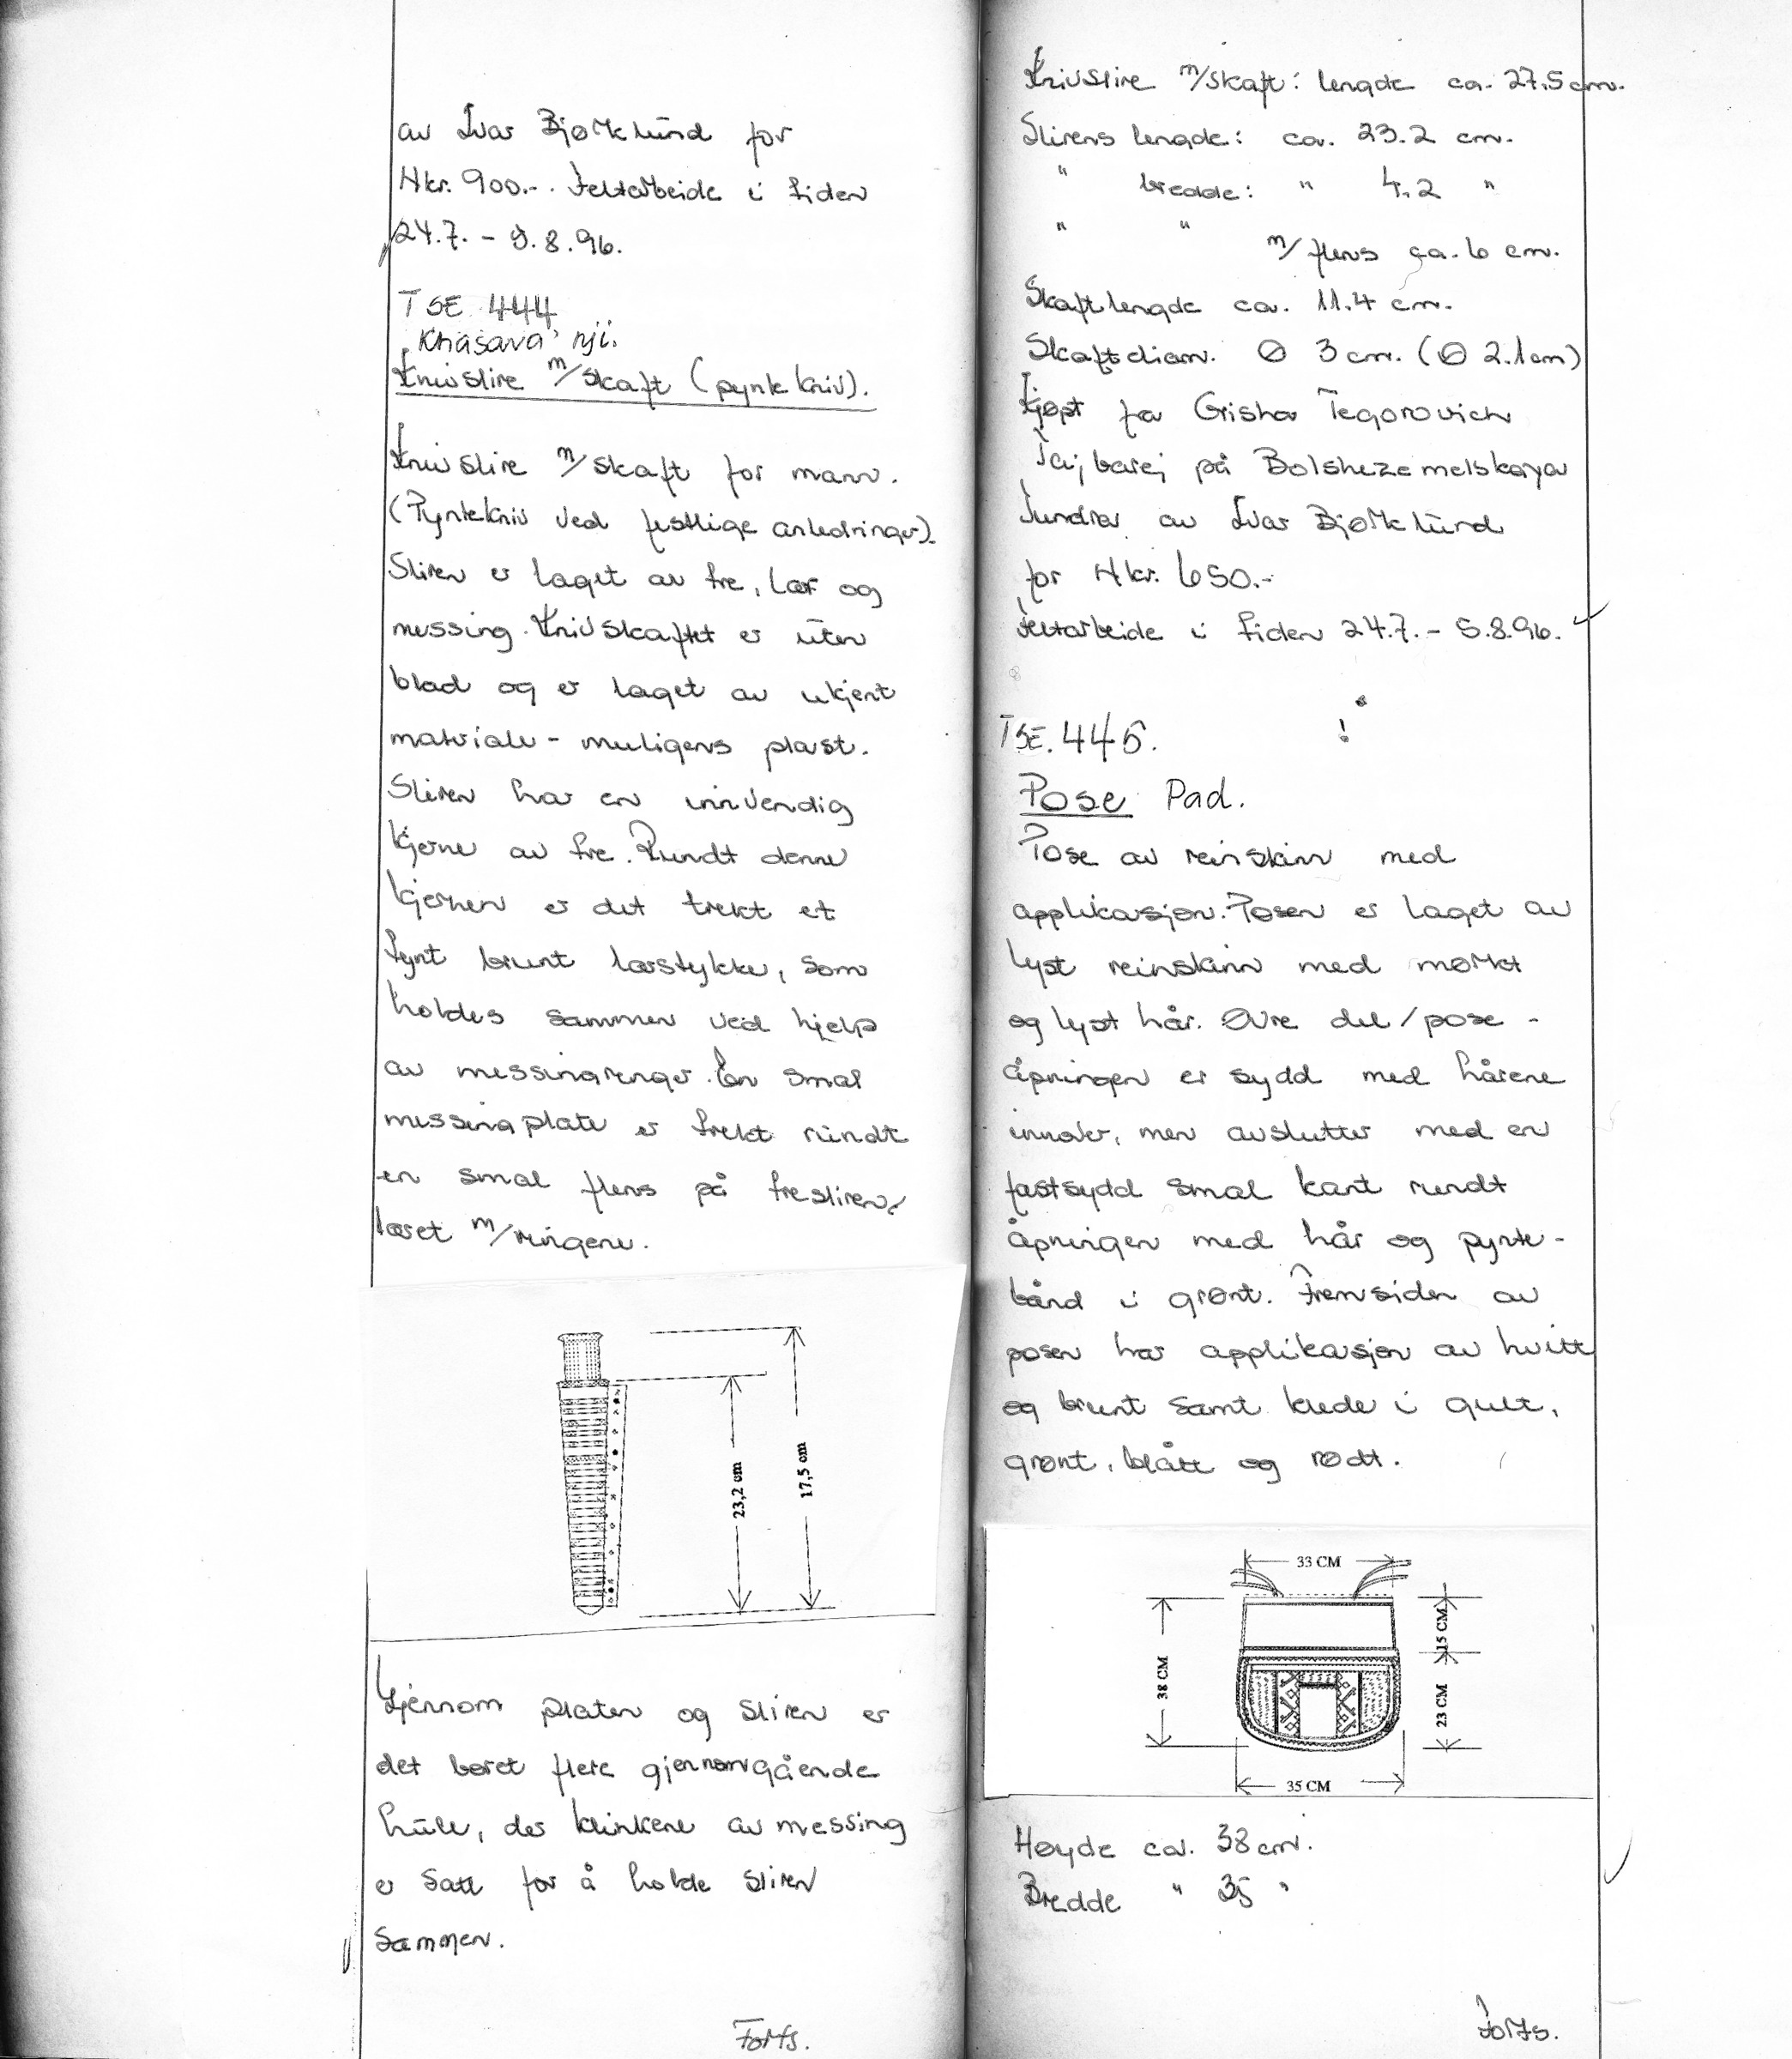 av Ivar Bjørklund for
Nkr. 900.-. Feltarbeide i tiden
24.7. - 5.8.96.
TSE 444
Khasava' nji.
Knivslire m/skaft (pyntekniv).
Knivslire m/skaft for mann.
(Pyntekniv ved festlige anledninger).
Sliren er laget av tre, lær og
messing. Knivskaftet er uten
blad og er laget av ukjent
materiale - muligens plast.
Sliren har en innvendig
kjerne av tre. Rundt denne
kjernen er det trekt et
tynt brunt lærstykke, som
holdes sammen ved hjelp
av messingringer. En smal
messingplate er trekt rundt
en smal flens på tresliren/
læret m/ringene.
23,2 cm
17,5 cm
Gjennom platen og sliren er
det boret flere gjennomgående
hull, der klinkene av messing
er satt for å holde sliren
sammen.
Forts.
Knivslire m/skaft: lengde ca. 27.5 cm.
Slirens lengde: ca. 23.2 cm.
" bredde: " 4.2 "
" " m/flens ca. 6 cm.
Skaftlengde ca. 11.4 cm.
Skaftdiam. Ø 3 cm. (Ø 2.1cm)
Kjøpt fra Grisha Yegorovich
Taibarei på Bolshezemelskaya
Tundra av Ivar Bjørklund
for Nkr. 650.-
Feltarbeide i tiden 24.7. - 5.8.96.
TSE. 445.
Pose Pad.
Pose av reinskinn med
applikasjon. Posen er laget av
lyst reinskinn med mørkt
og lyst hår. Øvre del/pose-
åpningen er sydd med hårene
innover, men avslutter med en
fastsydd smal kant rundt
åpningen med hår og pynte-
bånd i grønt. Fremsiden av
posen har applikasjon av hvitt
og brunt samt klede i gult,
grønt, blått og rødt.
33 CM
38 CM
15 CM
23 CM
35 CM
Høyde ca. 38 cm.
Bredde " 35 "
Forts.